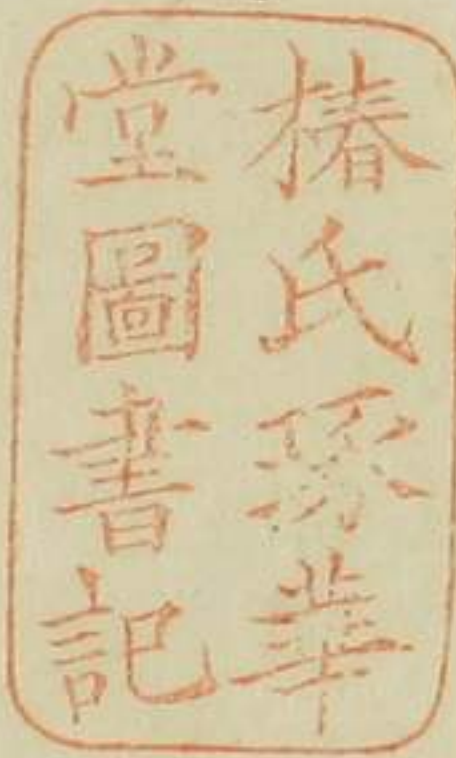 椿氏琢華
堂圖書記